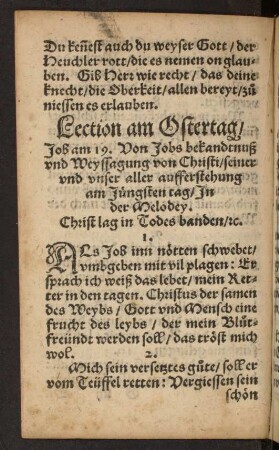 Du keñest auch du weyser Gott / der
Heuchler rott / die es nemen on glau-
ben. Gib Herr wie recht / das deine
knecht / die Oberkeit / allen bereyt / zů
niessen es erlauben.
Lection am Ostertag /
Job am 19. Von Jobs bekandtnuß
vnd Weyssagung von Christi / seiner
vnd vnser aller aufferstehung
am Jüngsten tag / In
der Melodey.
Christ lag in Todes banden / ꝛc.
1.
ALs Job inn nötten schwebet /
vmbgeben mit vil plagen: Er
sprach ich weiß das lebet / mein Ret-
ter in den tagen. Christus der samen
des Weybs / Gott vnd Mensch eine
frucht des leybs / der mein Blůt-
freündt werden soll / das tröst mich
wol.
2.
Mich sein versetztes güte / soll er
vom Teüffel retten: Vergiessen sein
schön